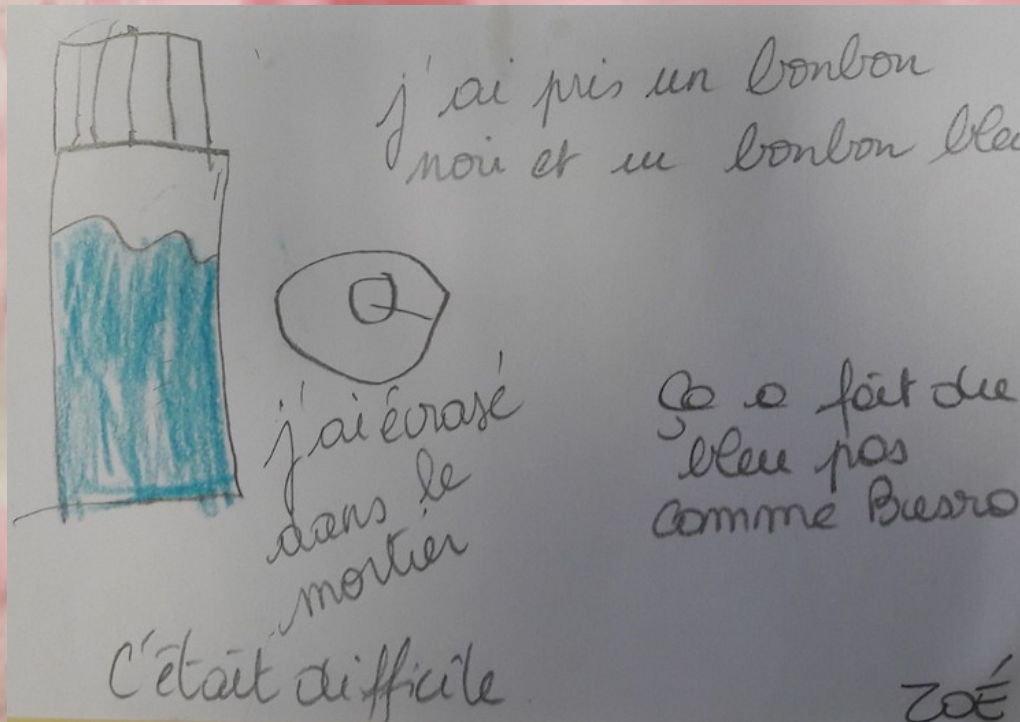 j'ai pris un bonbon
noir et un bonbon bleu
j'ai écrasé
dans le
mortier
Ça a fait du
bleu pas
comme Busra
C'était difficile
ZOÉ